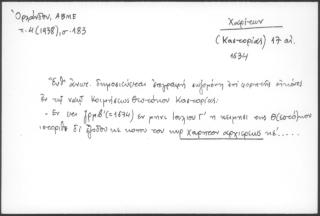 Ὀρλάνδου, ΑΒΜΕ
τ. 4 (1938), σ. 183
Χαρίτων
(Καστοριάς) 17 αι.
1634
Ἔνθ' ἀνωτ. δημοσιεύεται ἐπιγραφή σωζομένη ἐπί φορητῆς εἰκόνος
ἐν τῷ ναῷ Κοιμήσεως Θεοτόκου Καστοριᾶς:
- Ἐν ετει ζρμβ' (=1634) ἐν μηνι Ιουλιου Γ' η κοιμησι της Θ(εοτό)κου
ιστορίθη δι εξοδου κε κοπου του κυρ Χαρητον αρχιερεως κε'.....